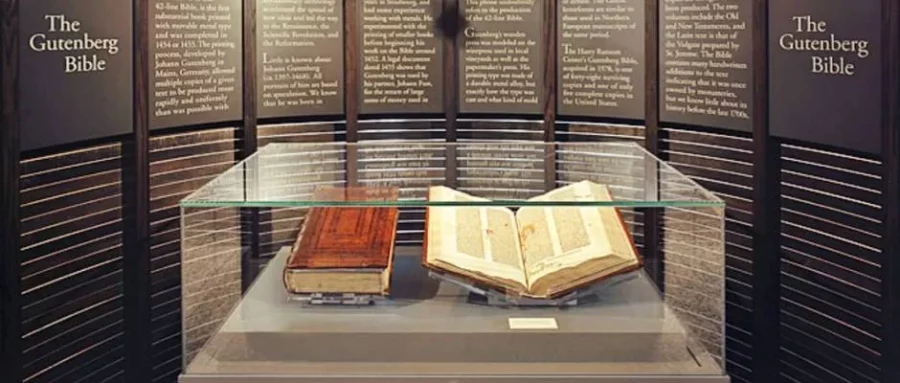 The
Gutenberg
Bible
42-line Bible, is the first
substantial book printed
with movable metal type
and was completed in
1454 or 1455. The printing
process, developed by
Johann Gutenberg in
Mainz, Germany, allowed
multiple copies of a given
text to be produced more
rapidly and uniformly
than was possible with
accelerated the spread of
new ideas and led the way
to the Renaissance, the
Scientific Revolution, and
the Reformation.
Little is known about
Johann Gutenberg
(ca. 1397-1468). All
portraits of him are based
on speculation. We know
that he was born in
years in Strasbourg, and
had some experience
working with metals. He
experimented with the
printing of smaller books
before beginning his
work on the Bible around
1452. A legal document
dated 1455 shows that
Gutenberg was sued by
his partner, Johann Fust,
for the return of large
sums of money used in
refers to the production
of the 42-line Bible.
Gutenberg's wooden
press was modeled on the
winepress used in local
vineyards as well as the
papermaker's press. His
printing type was made of
a durable metal alloy, but
exactly how the type was
cast and what kind of mold
letterforms are similar to
those used in Northern
European manuscripts of
the same period.
The Harry Ransom
Center's Gutenberg Bible,
acquired in 1978, is one
of forty-eight surviving
copies and one of only
five complete copies in
the United States.
been produced. The two
volumes include the Old
and New Testaments, and
the Latin text is that of
the Vulgate prepared by
St. Jerome. The Bible
contains many handwritten
additions to the text
indicating that it was once
owned by monasteries,
but we know little about its
history before the late 1700s.
The
Gutenberg
Bible